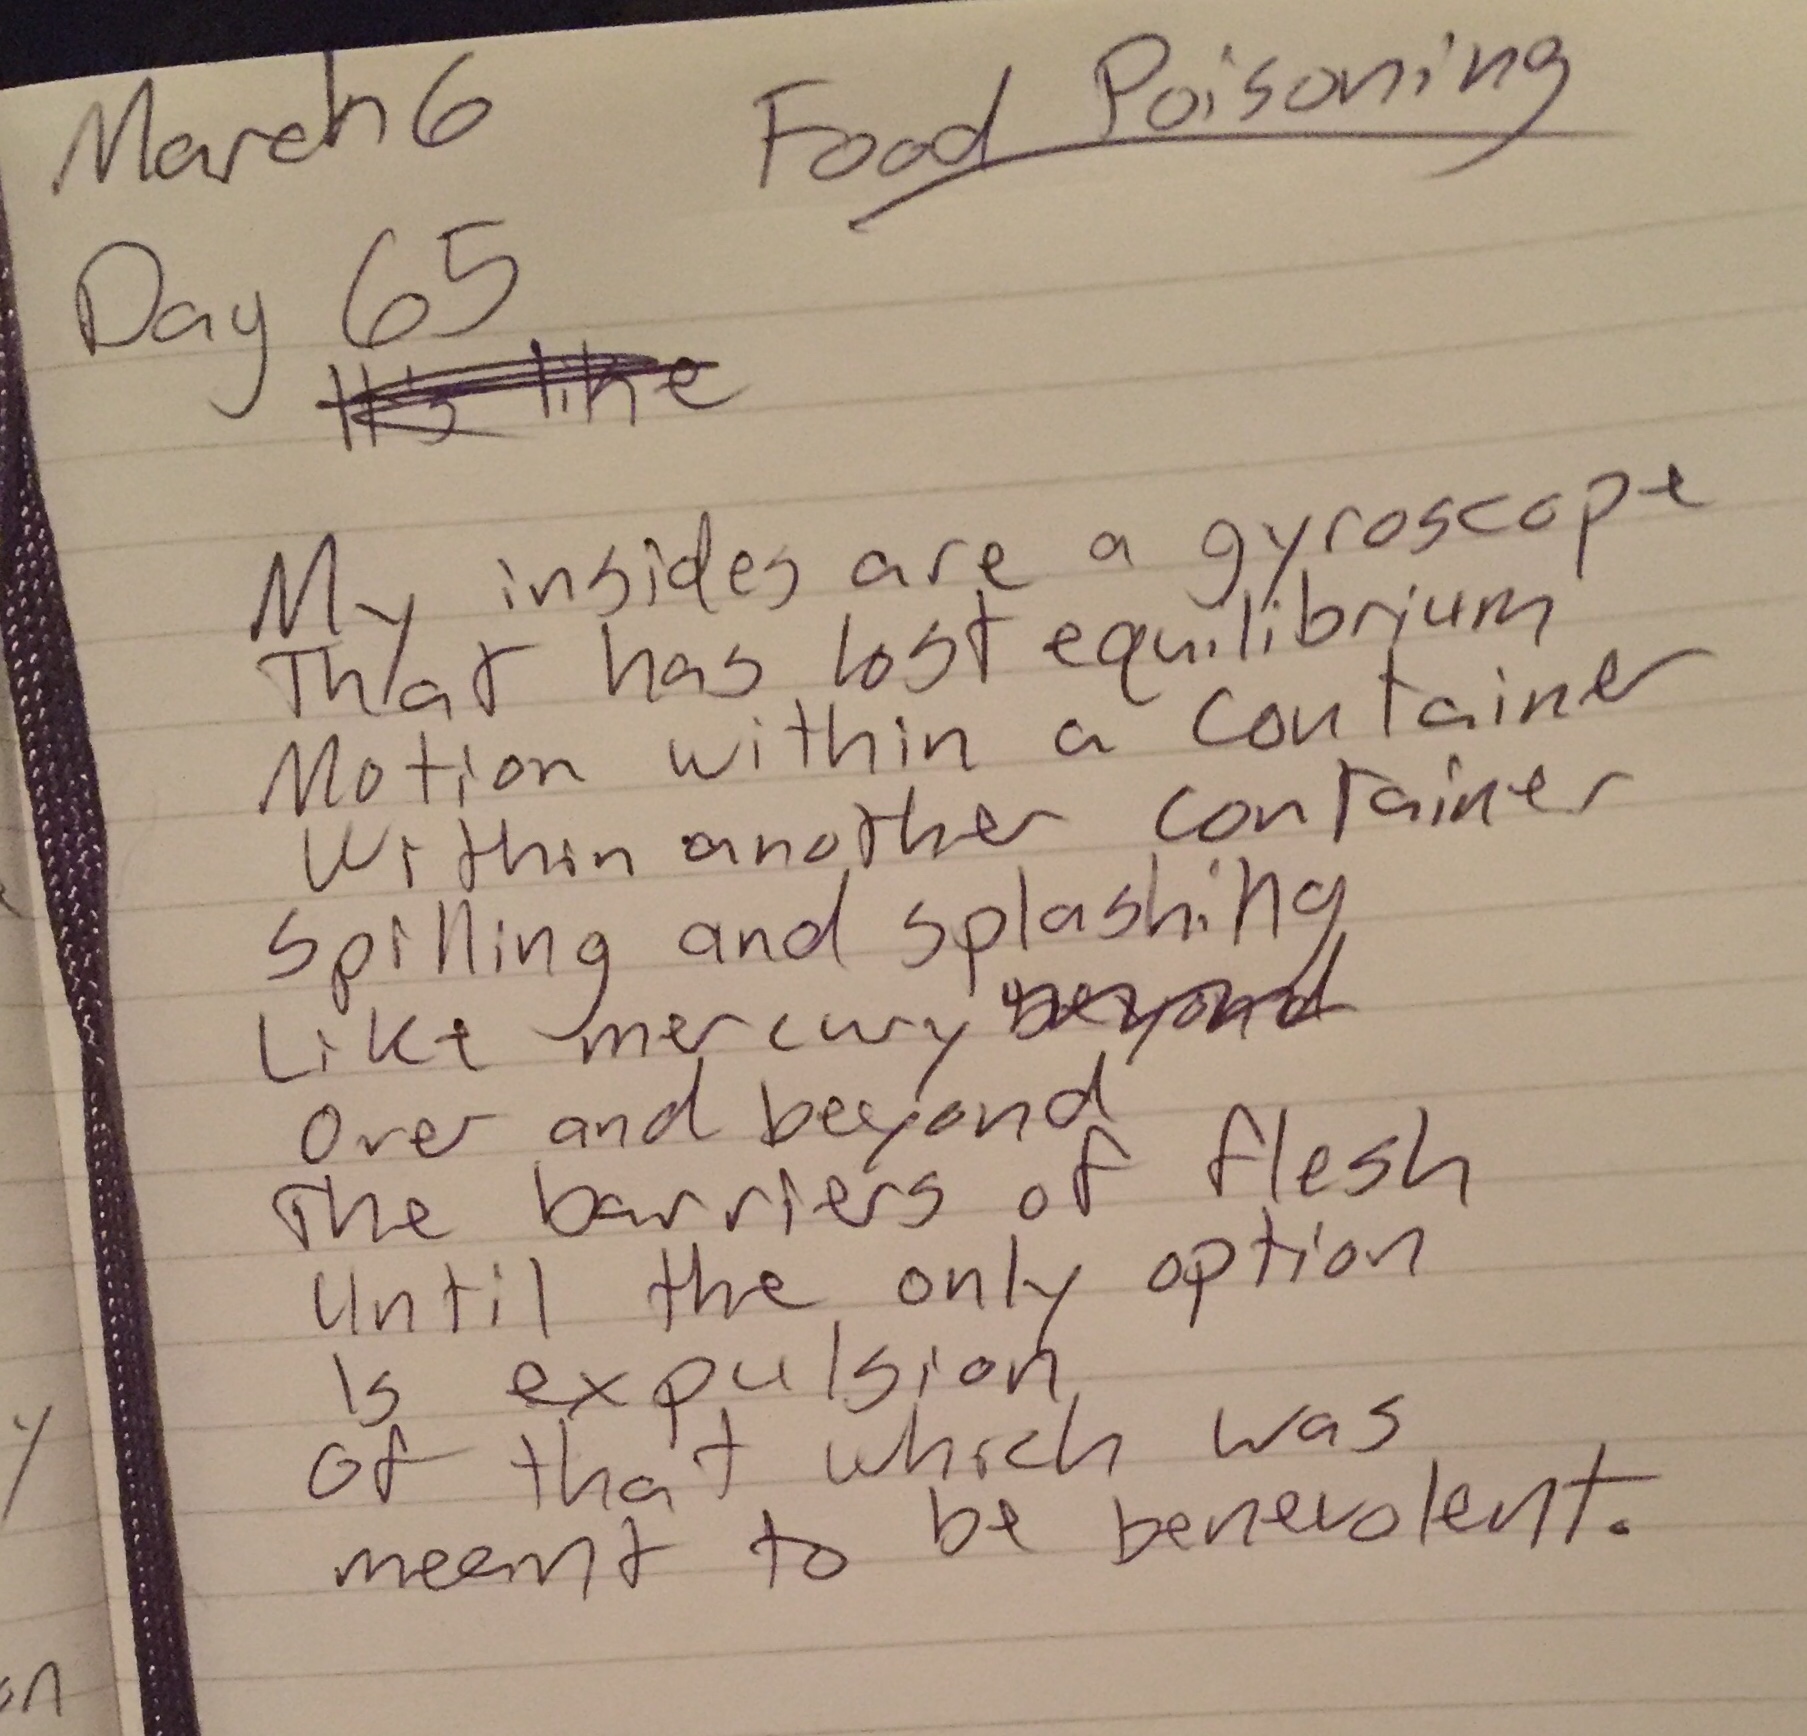 March 6
Food Poisoning
Day 65
It's like
My insides are a gyroscope
That has lost equilibrium
Motion within a container
Within another container
Spilling and splashing
Like mercury beyond
Over and beyond
The barriers of flesh
Until the only option
Is expulsion
Of that which was
meant to be benevolent.
y
on